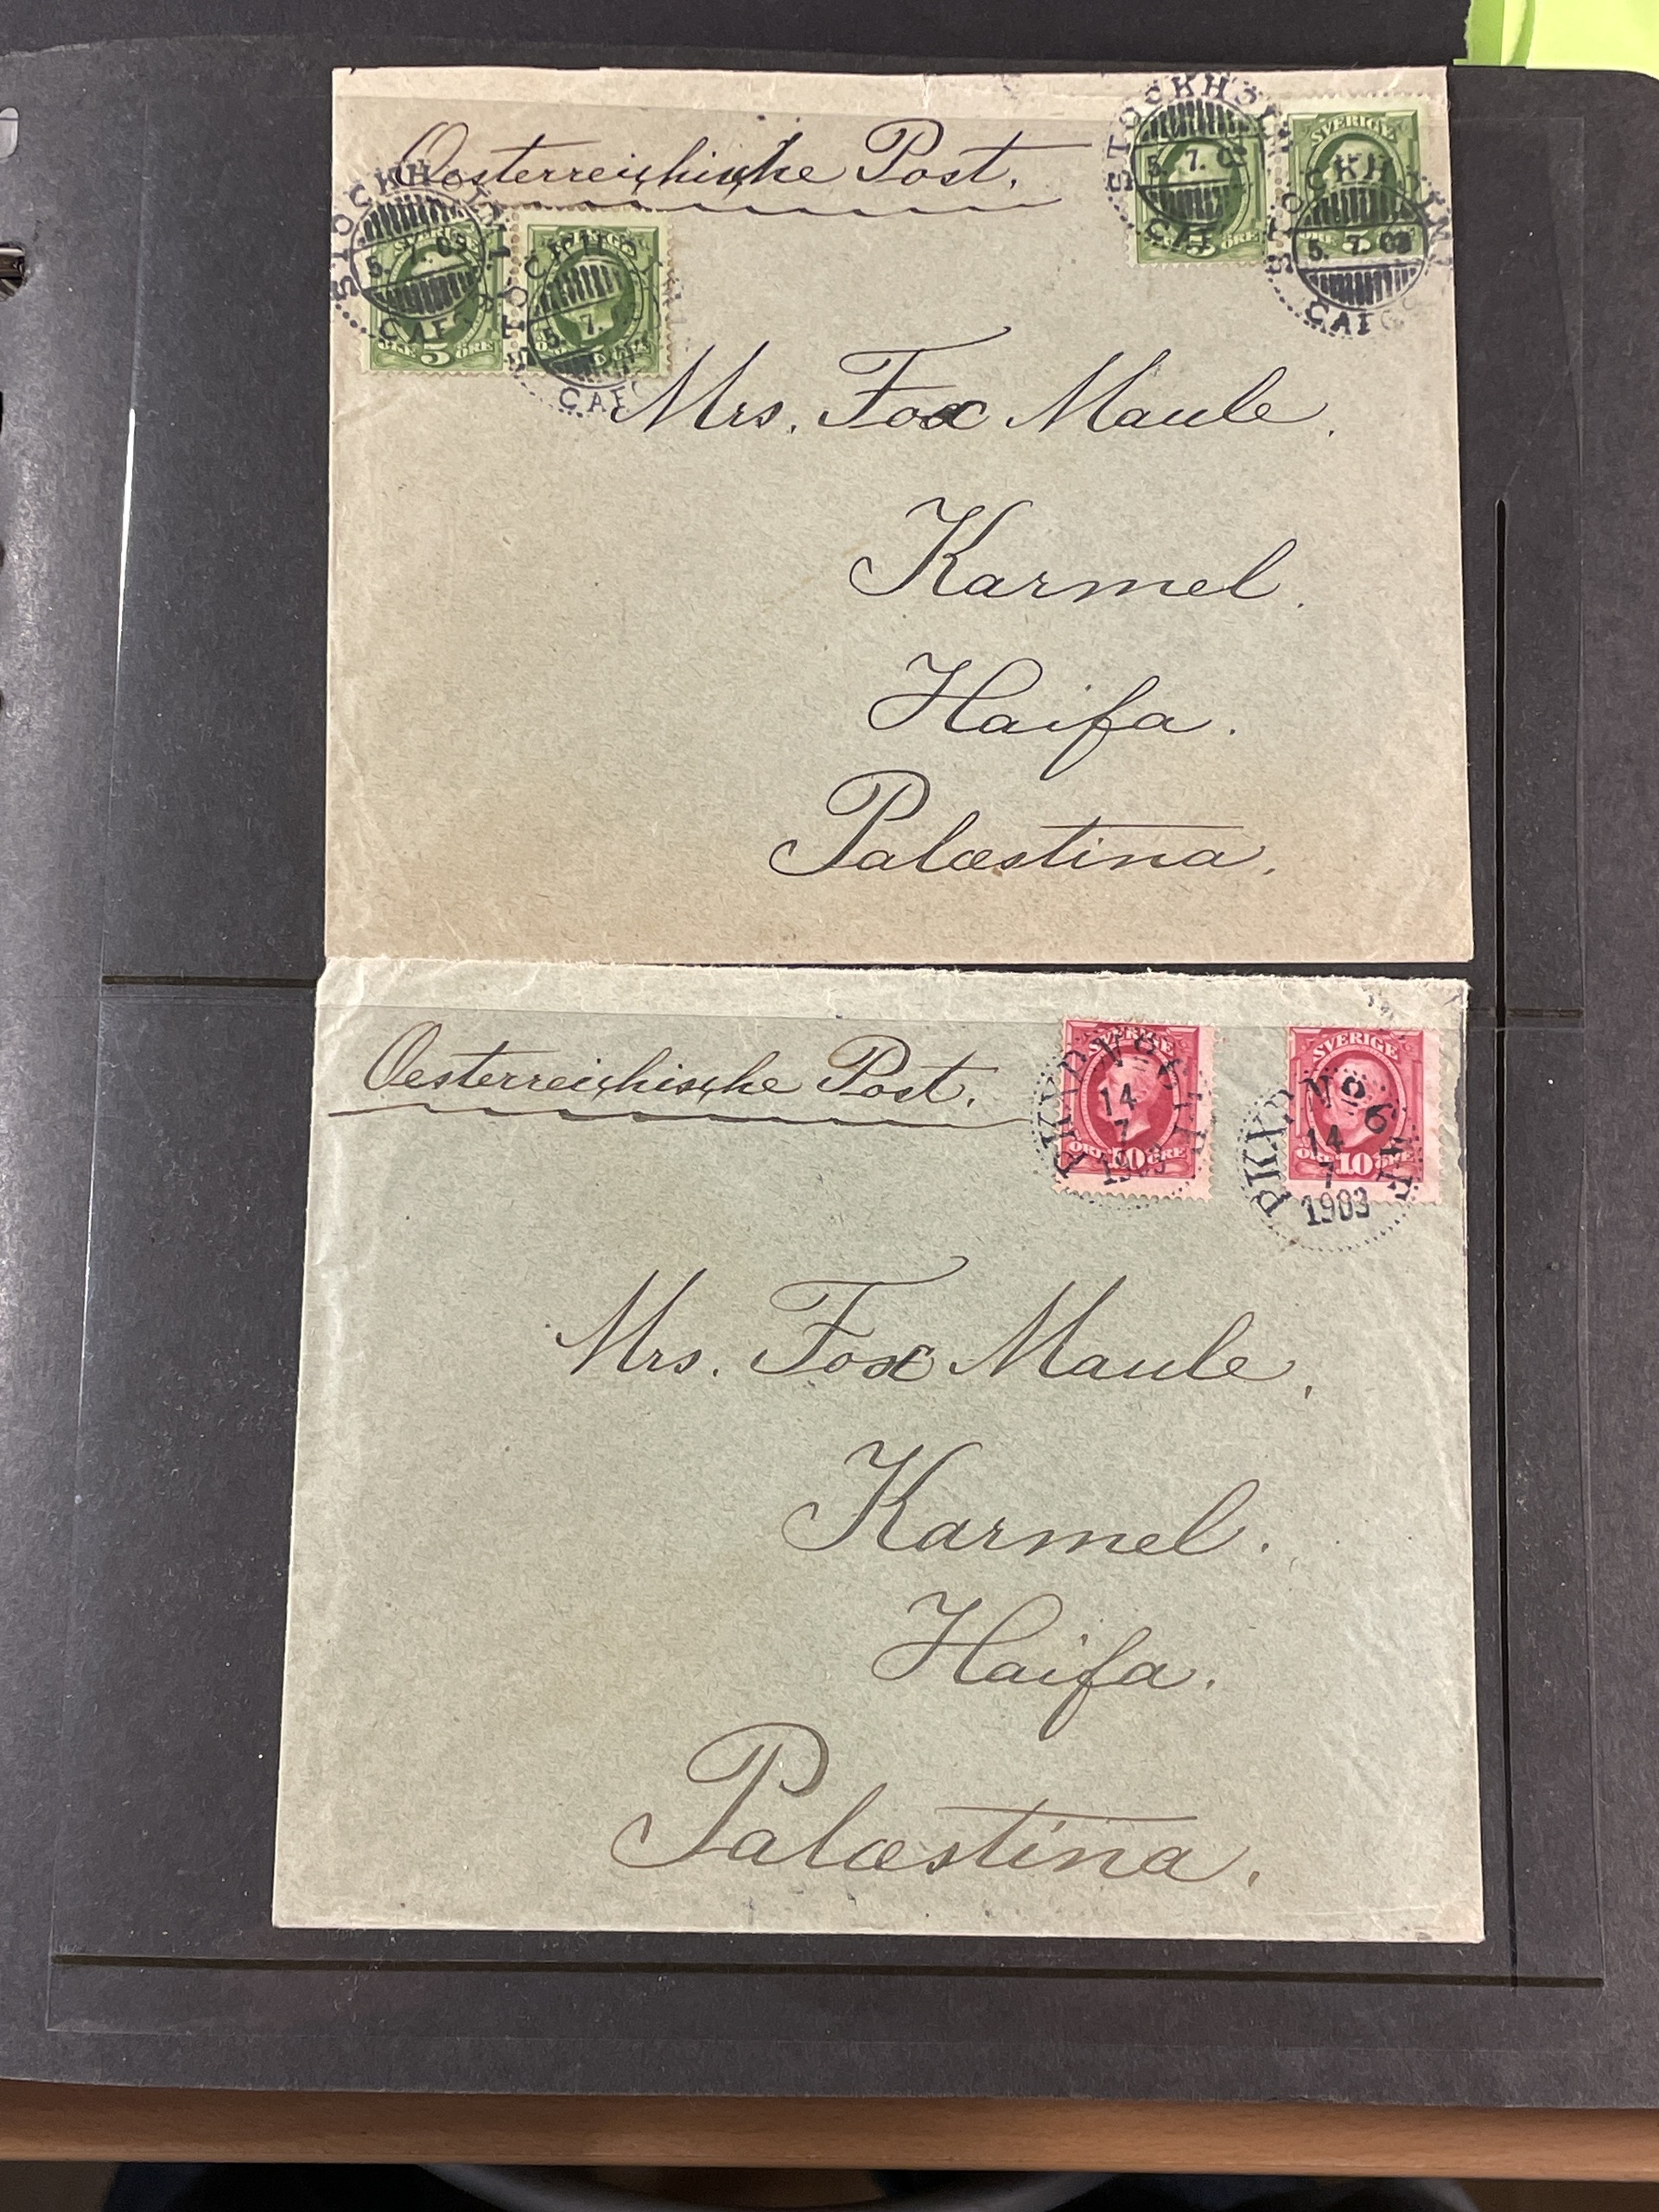 Oesterreichische Post.
STOCKHOLM
5. 7. 03
SVERIGE
5 ÖRE
STOCKHOLM
5. 7.
STOCKHOLM
5. 7. 03
5 ÖRE
SVERIGE
STOCKHOLM
5. 7. 03
Mrs. Fox Maule.
Karmel.
Haifa.
Palæstina.
Oesterreichische Post.
SVERIGE
PKXP No 6
14
7
1903
10 ÖRE
SVERIGE
PKXP No 6
14
7
1903
ÖRE 10 ÖRE
Mrs. Fox Maule.
Karmel.
Haifa.
Palæstina.